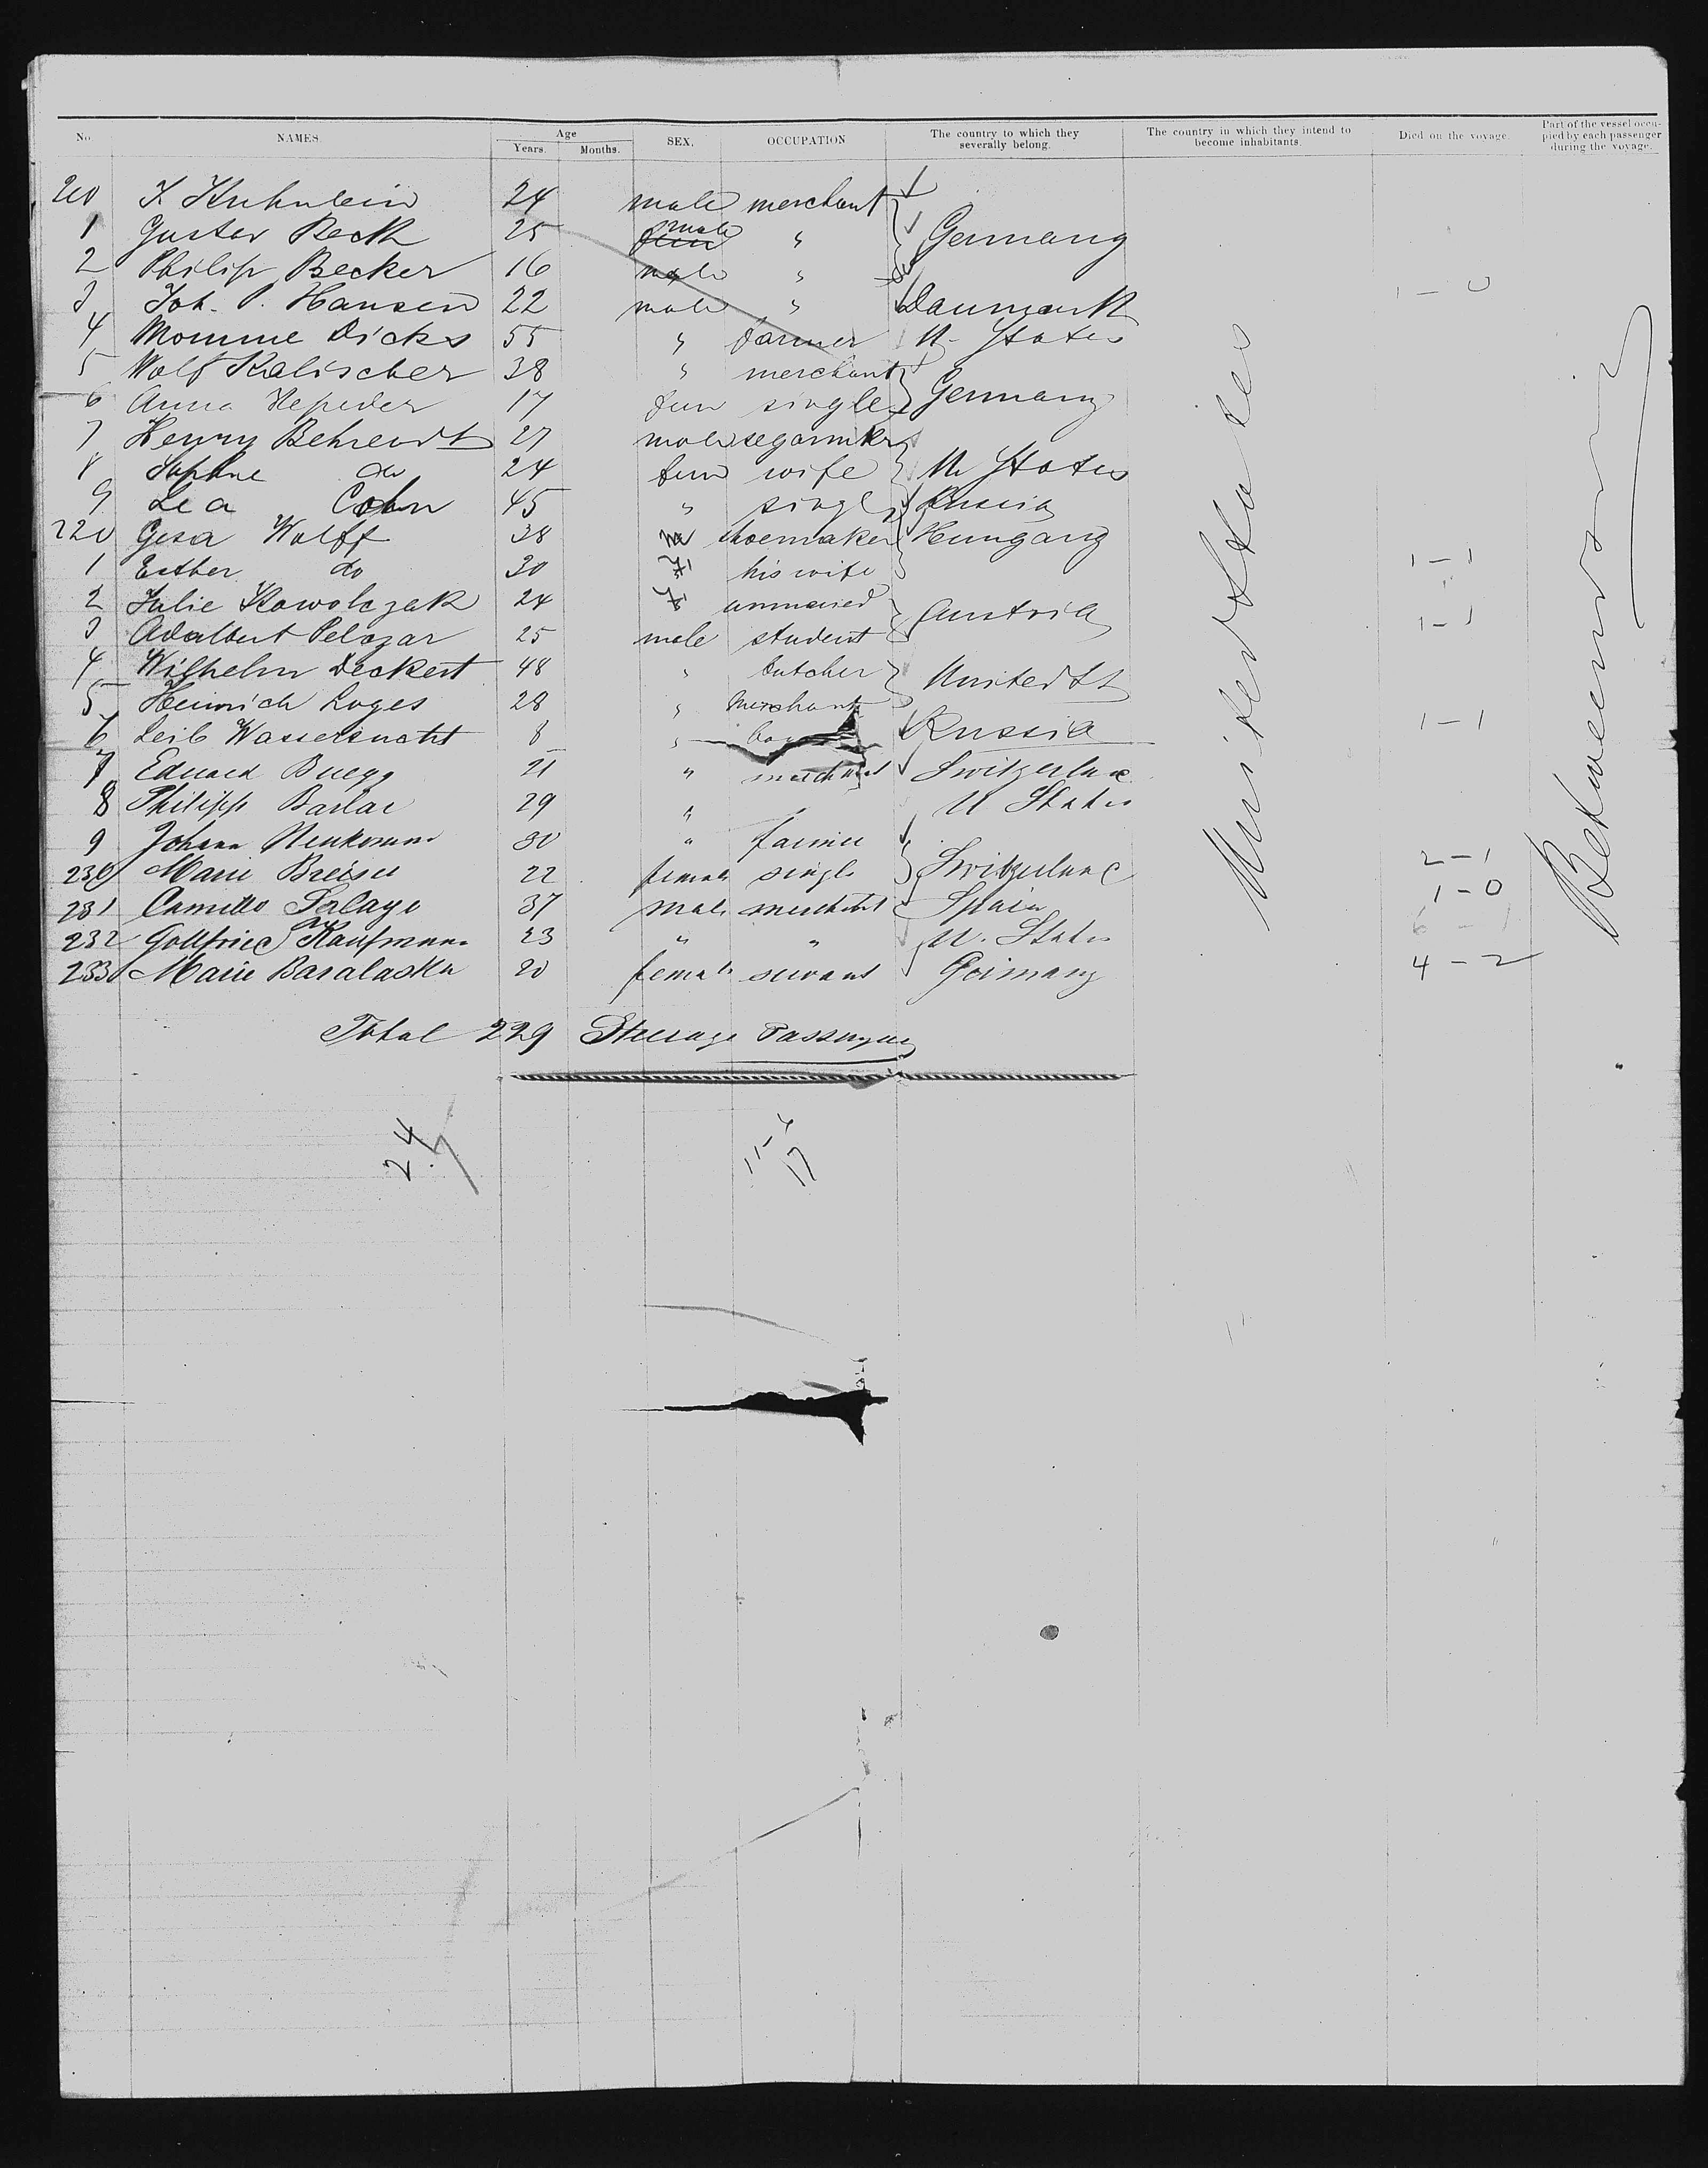 No. NAMES. Age Years. Months. SEX. OCCUPATION The country to which they severally belong. The country in which they intend to become inhabitants. Died on the voyage. Part of the vessel occupied by each passenger during the voyage.
210 K. Kuhnlein 24 male merchant
1 Gustav Beck 25 male " Germany
2 Philipp Becker 16 male "
3 Joh. P. Hansen 22 male " Danmark 1 — 0
4 Momme Dicks 55 " farmer U. States
5 Wolf Kalischer 38 " merchant
6 Anna 17 fem single Germany
7 Henry Behrendt 27 male segarmkr
8 Sophne do 24 fem wife U States
9 Lea Cohn 45 " singl Russia
220 Gesa Wolff 38 M shoemaker Hungary
1 Esther do 30 F his wife 1 — 1
2 Julie Kowolczak 24 F unmaried Austria
3 Adalbert Pelozar 25 male student 1 — 1
4 Wilhelm Deckert 48 " butcher United St
5 Heinrich Loges 28 " merchant
6 Leib Wassersucht 8 " boy Russia 1 — 1
7 Eduard Buegg 21 " merchant Switzerland
8 Philipp Barlac 29 " U States
9 Johann Neukomm 30 " farmer
230 Marie Breiser 22 female single Switzerland 2 — 1
231 Camillo Salaye 37 male merchant Spain 1 — 0
232 Gottfried Kaufmann 23 " " U. States 6 — 1
233 Marie Basalaska 20 female servant Germany 4 — 2
United States
Between
Total 229 Steerage Passengers
24
11 — 6
17